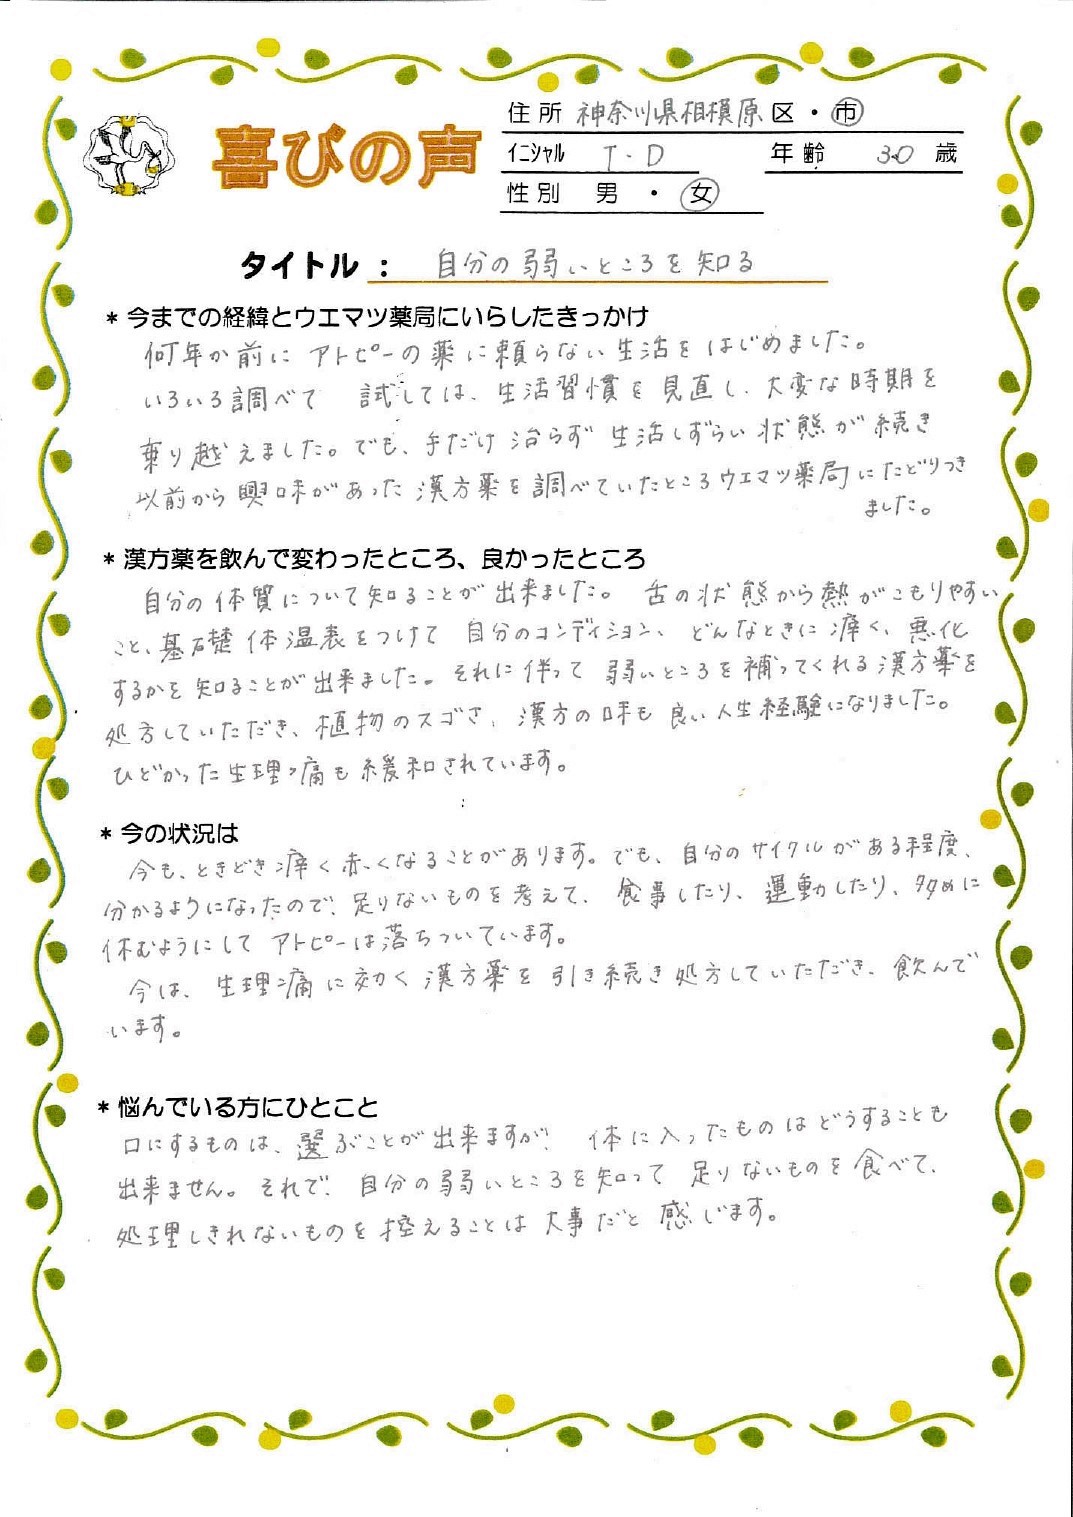 喜びの声
住所 神奈川県相模原 区・市
ｲﾆｼｬﾙ T・D 年齢 30 歳
性別 男 ・ 女
タイトル： 自分の弱いところを知る
* 今までの経緯とウエマツ薬局にいらしたきっかけ
何年か前に アトピーの薬に頼らない生活をはじめました。
いろいろ調べて 試しては、生活習慣を見直し、大変な時期を
乗り越えました。でも、手だけ治らず 生活しずらい状態が続き
以前から興味があった漢方薬を調べていたところウエマツ薬局にたどりつき
ました。
* 漢方薬を飲んで変わったところ、良かったところ
自分の体質について知ることが出来ました。 舌の状態から熱がこもりやすい
こと、基礎体温表をつけて 自分のコンディション、どんなときに痒く、悪化
するかを知ることが出来ました。それに伴って 弱いところを補ってくれる漢方薬を
処方していただき、植物のスゴさ、漢方の味も良い人生経験になりました。
ひどかった生理痛も緩和されています。
* 今の状況は
今も、ときどき痒く赤くなることがあります。でも、自分のサイクルがある程度、
分かるようになったので、足りないものを考えて、食事したり、運動したり、多めに
休むようにして アトピーは落ちついています。
今は、生理痛に効く漢方薬を引き続き処方していただき、飲んで
います。
* 悩んでいる方にひとこと
口にするものは、選ぶことが出来ますが、体に入ったものはどうすることも
出来ません。それで、自分の弱いところを知って 足りないものを食べて、
処理しきれないものを控えることは大事だと感じます。